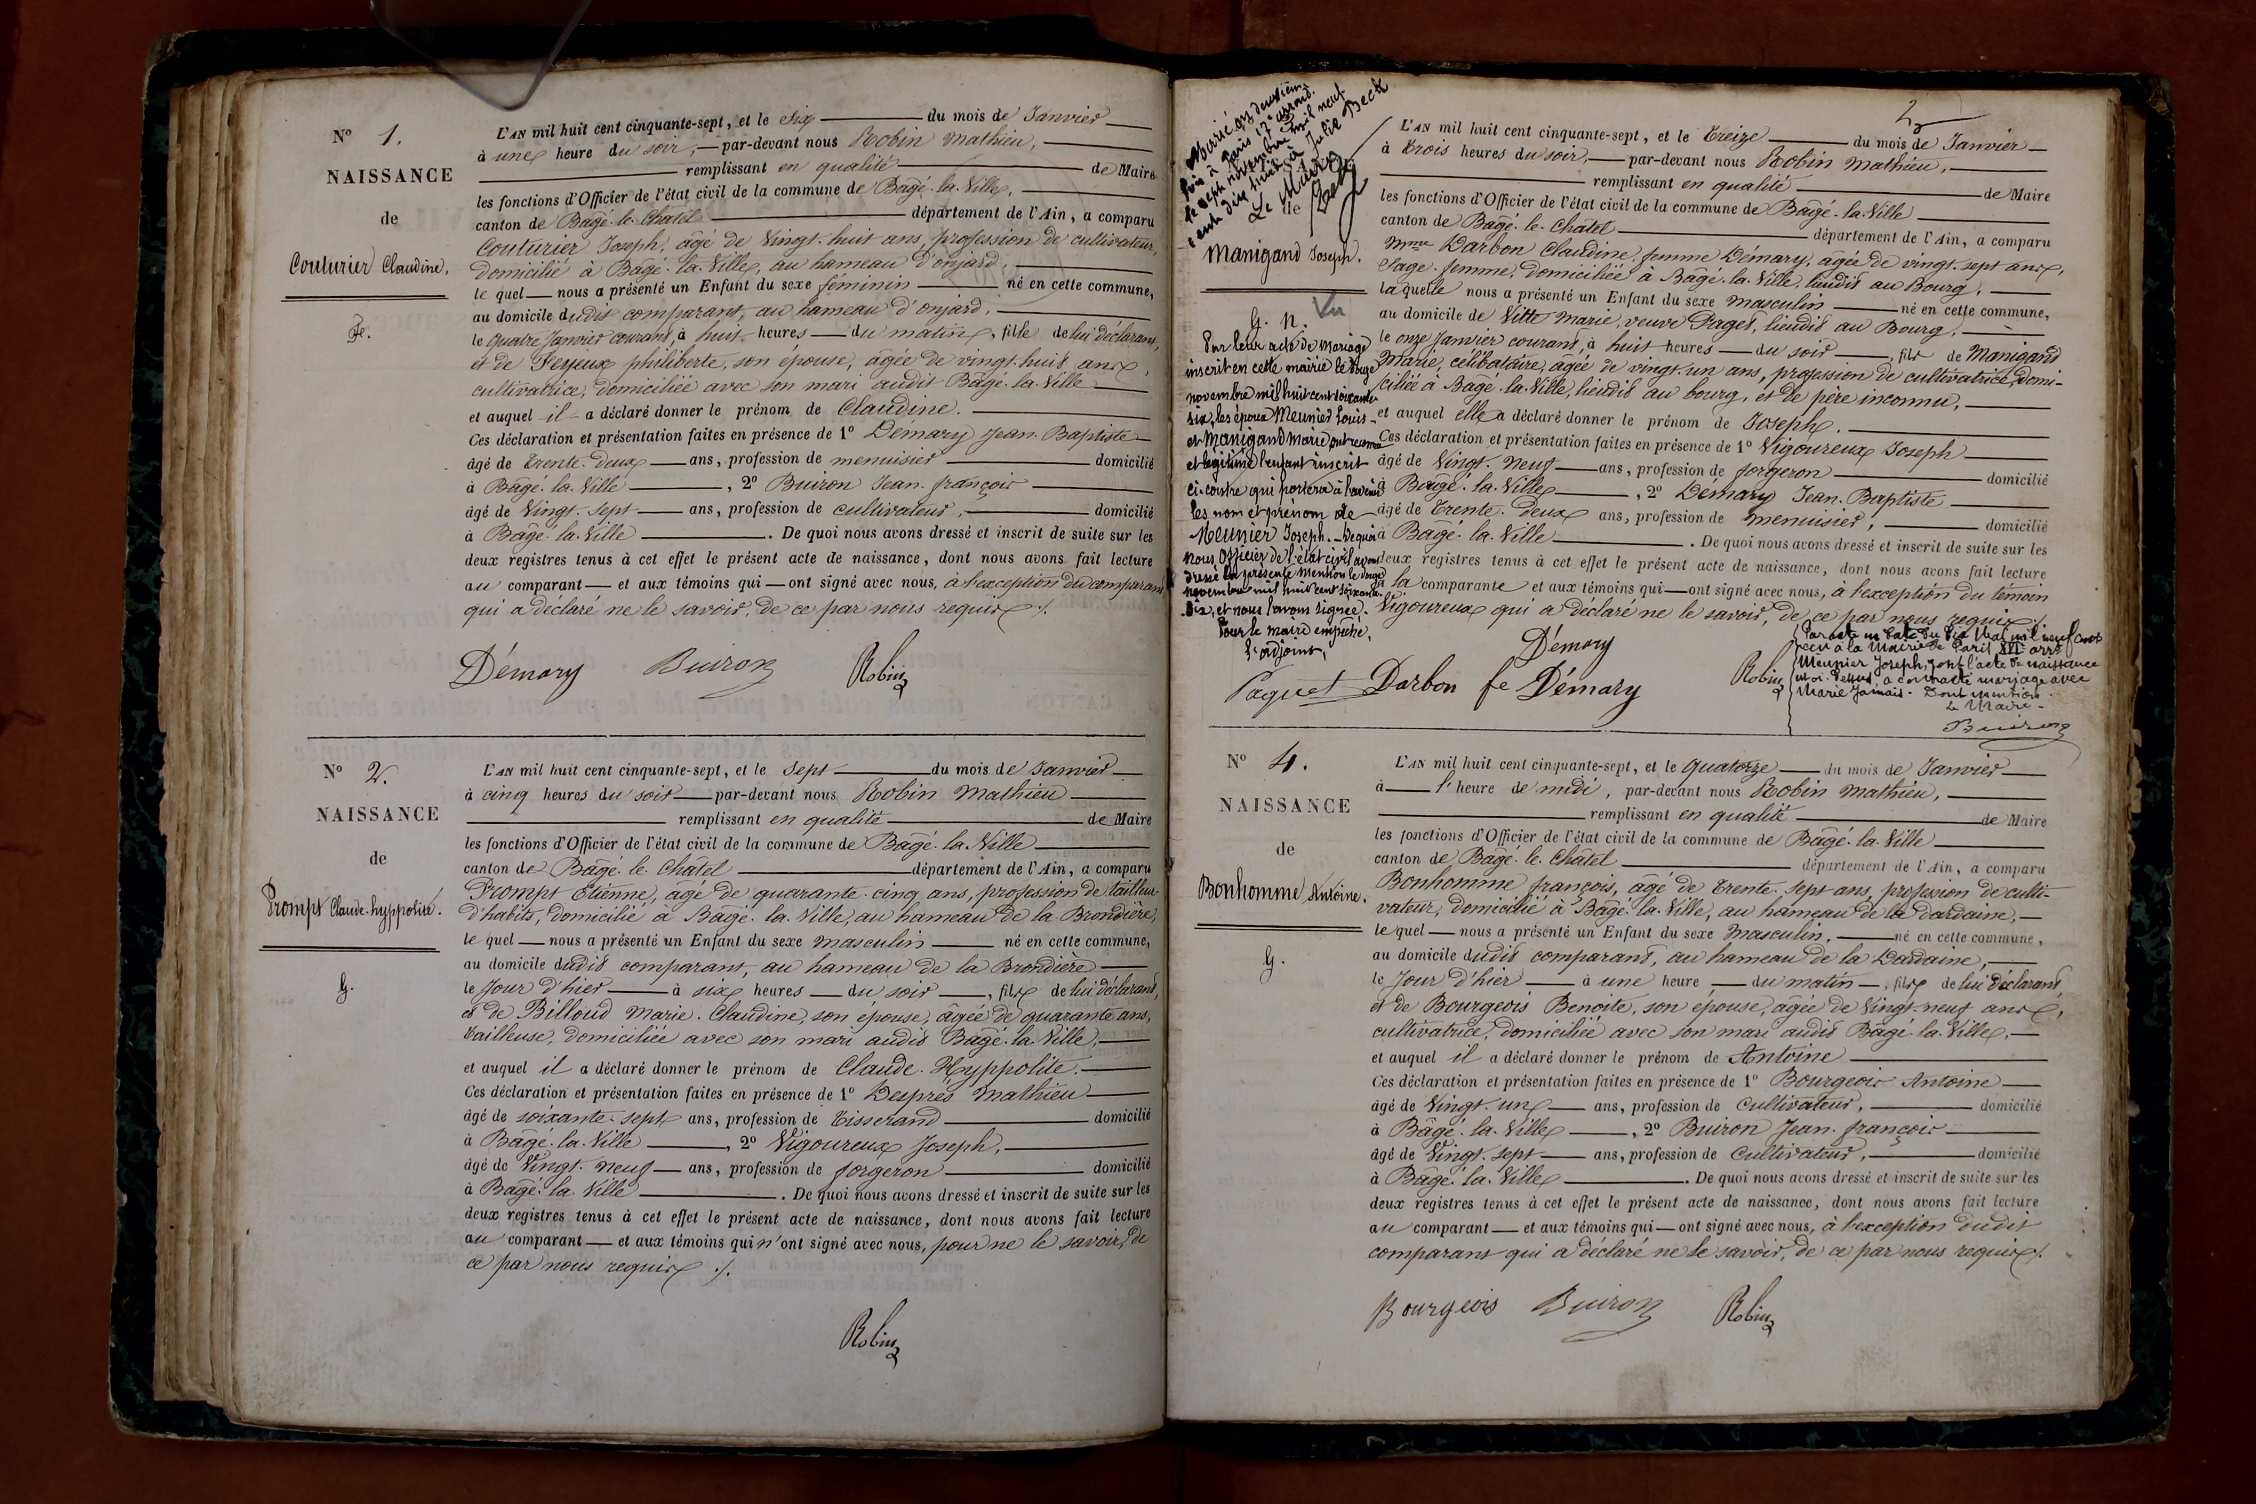 Nº 1.
NAISSANCE
de
Couturier Claudine.
fe.
L'AN mil huit cent cinquante-sept, et le Six du mois de Janvier
à une heure du soir, par-devant nous Robin Mathieu,
remplissant en qualité de Maire
les fonctions d'Officier de l'état civil de la commune de Bâgé-la-Ville,
canton de Bâgé-le-Châtel département de l'Ain, a comparu
Couturier Joseph, âgé de vingt-huit ans, profession de cultivateur,
domicilié à Bâgé-la-Ville, au hameau d'onjard,
le quel nous a présenté un Enfant du sexe féminin né en cette commune,
au domicile dudit comparant, au hameau d'onjard,
le quatre Janvier courant, à huit heures du matin, fille de lui déclarant,
et de philiberte, son épouse, âgée de vingt-huit ans,
cultivatrice, domiciliée avec son mari audit Bâgé-la-Ville
et auquel il a déclaré donner le prénom de Claudine.
Ces déclaration et présentation faites en présence de 1º Démary Jean-Baptiste
âgé de trente-deux ans, profession de menuisier domicilié
à Bâgé-la-Ville, 2º Buiron Jean-françois
âgé de Vingt-sept ans, profession de cultivateur, domicilié
à Bâgé-la-Ville. De quoi nous avons dressé et inscrit de suite sur les
deux registres tenus à cet effet le présent acte de naissance, dont nous avons fait lecture
au comparant et aux témoins qui ont signé avec nous, à l'exception du comparant
qui a déclaré ne le savoir, de ce par nous requis ./.
Démary Buiron Robin
Nº 2.
NAISSANCE
de
Prompt Claude-hyppolite.
g.
L'AN mil huit cent cinquante-sept, et le Sept du mois de Janvier
à cinq heures du soir par-devant nous Robin Mathieu
remplissant en qualité de Maire
les fonctions d'Officier de l'état civil de la commune de Bâgé-la-Ville
canton de Bâgé-le-Châtel département de l'Ain, a comparu
Prompt Etienne, âgé de quarante-cinq ans, profession de tailleur
d'habits, domicilié à Bâgé-la-Ville, au hameau de la Brondière,
le quel nous a présenté un Enfant du sexe masculin né en cette commune,
au domicile dudit comparant, au hameau de la Brondière
le Jour d'hier à six heures du soir, fils de lui déclarant,
et de Billoud Marie-Claudine, son épouse, âgée de quarante ans,
tailleuse, domiciliée avec son mari audit Bâgé-la-Ville,
et auquel il a déclaré donner le prénom de Claude-Hyppolite.
Ces déclaration et présentation faites en présence de 1º Desprès Mathieu
âgé de soixante-sept ans, profession de tisserand domicilié
à Bâgé-la-Ville, 2º Vigoureux Joseph,
âgé de Vingt-neuf ans, profession de forgeron domicilié
à Bâgé-la-Ville. De quoi nous avons dressé et inscrit de suite sur les
deux registres tenus à cet effet le présent acte de naissance, dont nous avons fait lecture
au comparant et aux témoins qui n'ont signé avec nous, pour ne le savoir, de
ce par nous requis ./.
Robin
2
Marié en deuxièm
fois à Paris 17e arrond.
le sept novembre mil neuf
cent dix huit à Julie Beck
Le Maire
de
Manigand Joseph.
g. n.
Vu
Par leur acte de Mariage
inscrit en cette mairie le douze
novembre mil huit cent soixante
six, les époux Meunier Louis
et Manigand Marie ont reconnu
et légitimé l'enfant inscrit
ci-contre qui portera à l'avenir
les nom et prénom de
Meunier Joseph. De quoi
nous, Officier de l'état civil avons
dressé la présente mention le douze
novembre mil huit cent soixante
six, et nous l'avons signée.
Pour le maire empêché,
l'adjoint,
Paquet
L'AN mil huit cent cinquante-sept, et le treize du mois de Janvier
à trois heures du soir, par-devant nous Robin Mathieu,
remplissant en qualité de Maire
les fonctions d'Officier de l'état civil de la commune de Bâgé-la-Ville
canton de Bâgé-le-Châtel département de l'Ain, a comparu
Mme Darbon Claudine, femme Démary, âgée de vingt-sept ans,
sage-femme, domiciliée à Bâgé-la-Ville, lieudit au Bourg,
la quelle nous a présenté un Enfant du sexe masculin né en cette commune,
au domicile de Vitte Marie, veuve Paget, lieudit au Bourg,
le onze Janvier courant, à huit heures du soir, fils de Manigand
Marie, célibataire, âgée de vingt-un ans, profession de cultivatrice, domi-
ciliée à Bâgé-la-Ville, lieudit au bourg, et de père inconnu,
et auquel elle a déclaré donner le prénom de Joseph.
Ces déclaration et présentation faites en présence de 1º Vigoureux Joseph
âgé de Vingt-neuf ans, profession de forgeron domicilié
à Bâgé-la-Ville, 2º Démary Jean-Baptiste
âgé de trente-deux ans, profession de menuisier, domicilié
à Bâgé-la-Ville. De quoi nous avons dressé et inscrit de suite sur les
deux registres tenus à cet effet le présent acte de naissance, dont nous avons fait lecture
à la comparante et aux témoins qui ont signé avec nous, à l'exception du témoin
Vigoureux qui a déclaré ne le savoir, de ce par nous requis ./.
Démary
Darbon fe Démary
Robin
Par acte en date du dix Mai mil neuf cent
reçu à la Mairie de Paris XVIe arrt
Meunier Joseph, dont l'acte de naissance
est ci-dessus a contracté mariage avec
Marie Jamais. Dont mention.
Le Maire
Buiron
Nº 4.
NAISSANCE
de
Bonhomme Antoine.
g.
L'AN mil huit cent cinquante-sept, et le quatorze du mois de Janvier
à l'heure de midi, par-devant nous Robin Mathieu,
remplissant en qualité de Maire
les fonctions d'Officier de l'état civil de la commune de Bâgé-la-Ville
canton de Bâgé-le-Châtel département de l'Ain, a comparu
Bonhomme françois, âgé de trente-sept ans, profession de culti-
vateur, domicilié à Bâgé-la-Ville, au hameau de la dardaine,
le quel nous a présenté un Enfant du sexe masculin, né en cette commune,
au domicile dudit comparant, au hameau de la Dardaine,
le Jour d'hier à une heure du matin, fils de lui déclarant,
et de Bourgeois Benoite, son épouse, âgée de Vingt-neuf ans,
cultivatrice, domiciliée avec son mari audit Bâgé-la-Ville,
et auquel il a déclaré donner le prénom de Antoine
Ces déclaration et présentation faites en présence de 1º Bourgeois Antoine
âgé de Vingt-un ans, profession de Cultivateur, domicilié
à Bâgé-la-Ville, 2º Buiron Jean-françois
âgé de Vingt-sept ans, profession de Cultivateur, domicilié
à Bâgé-la-Ville. De quoi nous avons dressé et inscrit de suite sur les
deux registres tenus à cet effet le présent acte de naissance, dont nous avons fait lecture
au comparant et aux témoins qui ont signé avec nous, à l'exception dudit
comparant qui a déclaré ne le savoir, de ce par nous requis ./.
Bourgeois Buiron Robin